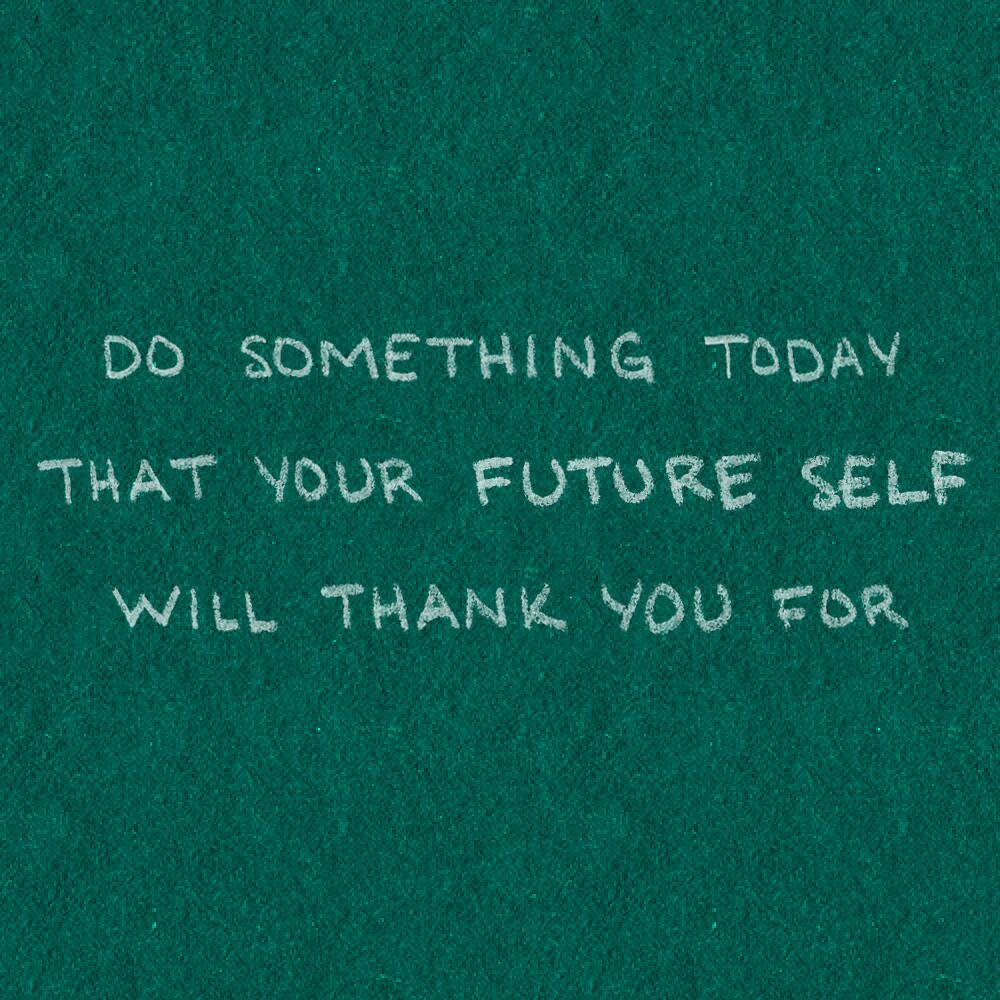 DO SOMETHING TODAY
THAT YOUR FUTURE SELF
WILL THANK YOU FOR